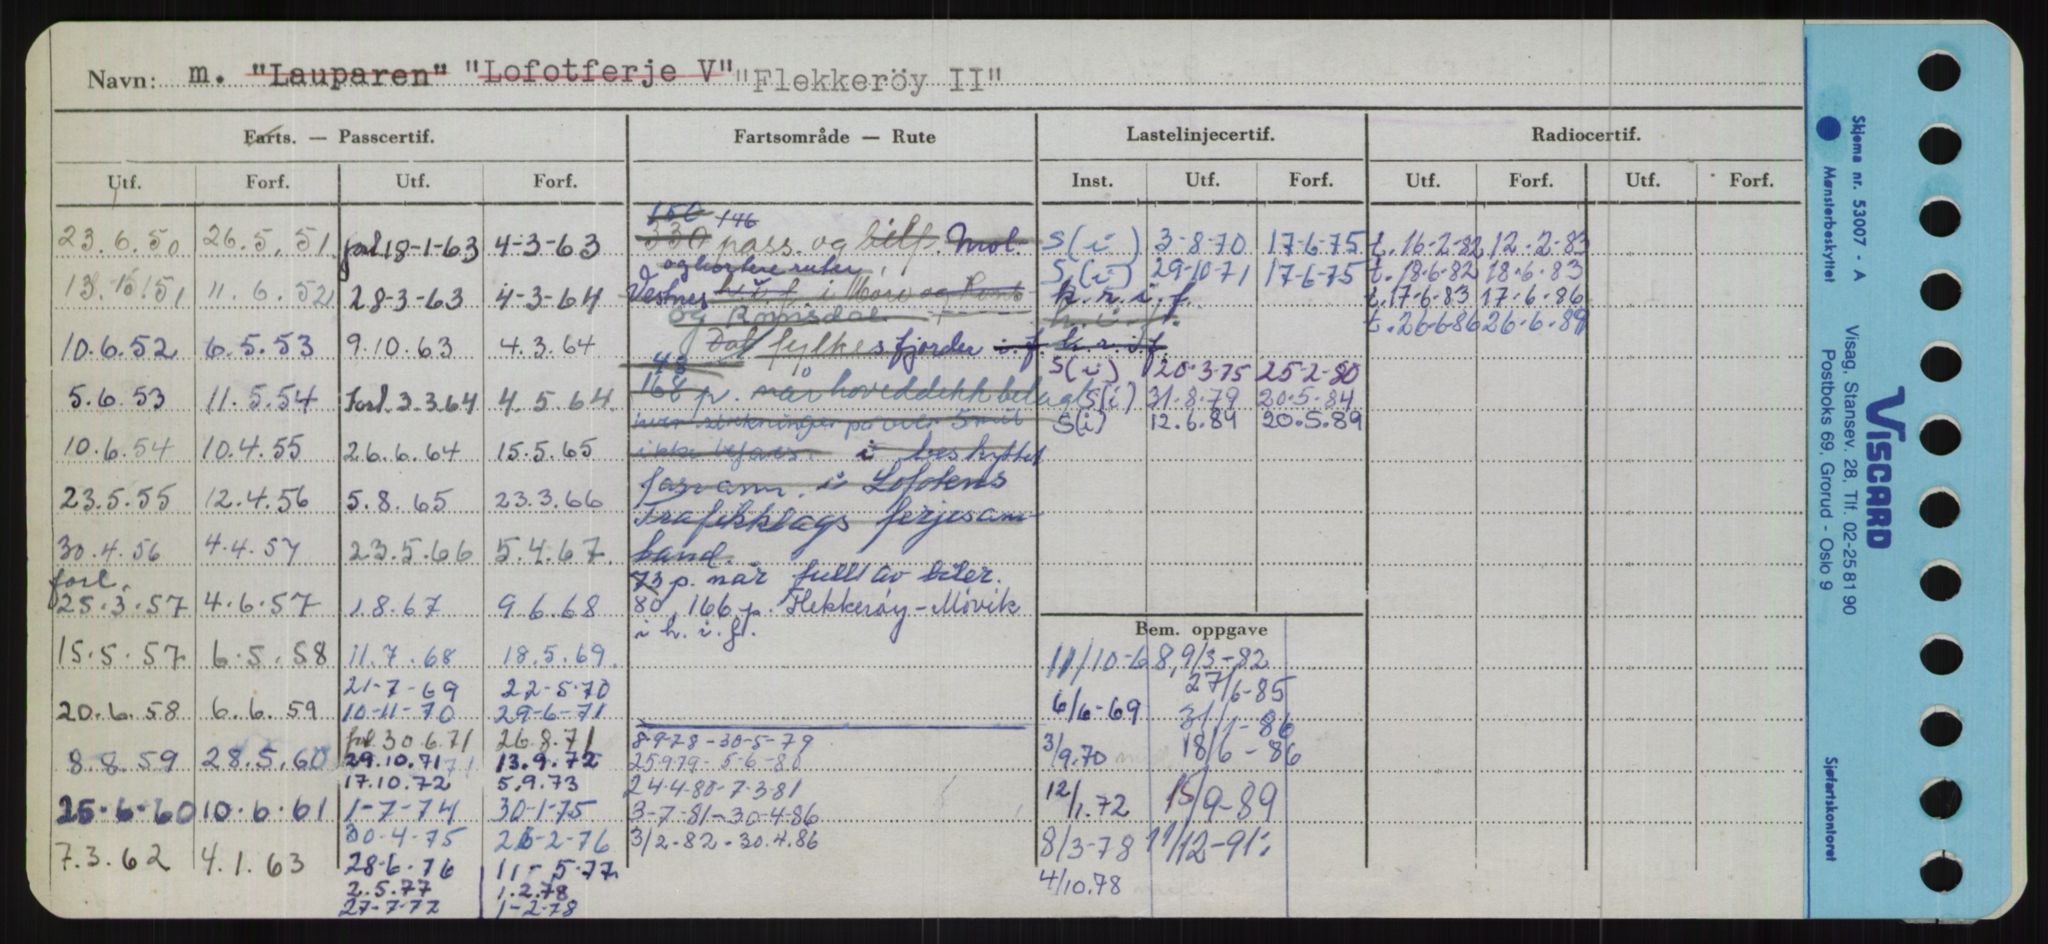 Navn: m. "Lauparen" "Lofotferje V" "Flekkeröy II"
Farts. — Passcertif. Fartsområde — Rute Lastelinjecertif. Radiocertif.
Utf. Forf. Utf. Forf. Inst. Utf. Forf. Utf. Forf. Utf. Forf.
150 146
23.6.50 26.5.51 forl 18-1-63 4-3-63 330 pass. og bilf. Mol. S(i) 3-8-70 17-6-75 t. 16-2-82 12-2-83
og kortere ruter S(i) 29-10-71 17-6-75 t. 18-6-82 18-6-83
11.6.52 28-3-63 4-3-64 Vestnes h.i.f. i Møre og Roms k.r.i.f. t. 17-6-83 17-6-86
og Romsdal h.i.f. t. 26-6-86 26-6-89
10.6.52 6.5.53 9.10.63 4.3.64 fylkesfjorder i.f. k.r.i.f.
43 S(i) 20-3-75 25-2-80
5.6.53 11.5.54 forl. 3.3.64 4.5.64 168 p. når hoveddekk belagt S(i) 31.8.79 20.5.84
innsirkninger på over 5 mil S(i) 12.6.84 20.5.89
10.6.54 10.4.55 26.6.64 15.5.65 ikke befares. i beskyttet
23.5.55 12.4.56 5.8.65 23.3.66 farvann i Lofotens
Trafikklags ferjesam-
30.4.56 4.4.57 23.5.66 5.4.67 band.
forl. 73 p. når fullt av biler.
25.3.57 4.6.57 1.8.67 9.6.68 80, 166 p. Flekkerøy - Møvik
i h.i.f. Bem. oppgave
15.5.57 6.5.58 11.7.68 18.5.69 11/10-68, 9/3-82
21-7-69 22-5-70 27/6-85
20.6.58 6.6.59 10-11-70 29-6-71 6/6-69 31/1-86
forl 30.6.71 26.8.71 8-9-78 - 30-5-79
8.8.59 28.5.60 29.10.71 13.9.72 25979 - 5-6-80 3/9.70 18/6-86
17.10.72 5.9.73 24-4-80 - 7-3-81
25-6-60 10-6-61 1-7-74 30-1-75 3-7-81 - 30-4-86 12/1.72 15/9-89
30-4-75 26-2-76 3/2-82 - 30.4.86
7.3.62 4.1.63 28-6-76 11-5-77 8/3-78 11/12-91
2.5.77 1.2.78 4/10.78
27-7-77 1-2-78
Skjema nr. 53007 - A Mønsterbeskyttet
Visag, Stansev. 28, Tlf. 02-25 81 90
Postboks 69, Grorud - Oslo 9
VISCARD
Sjøfartskontoret